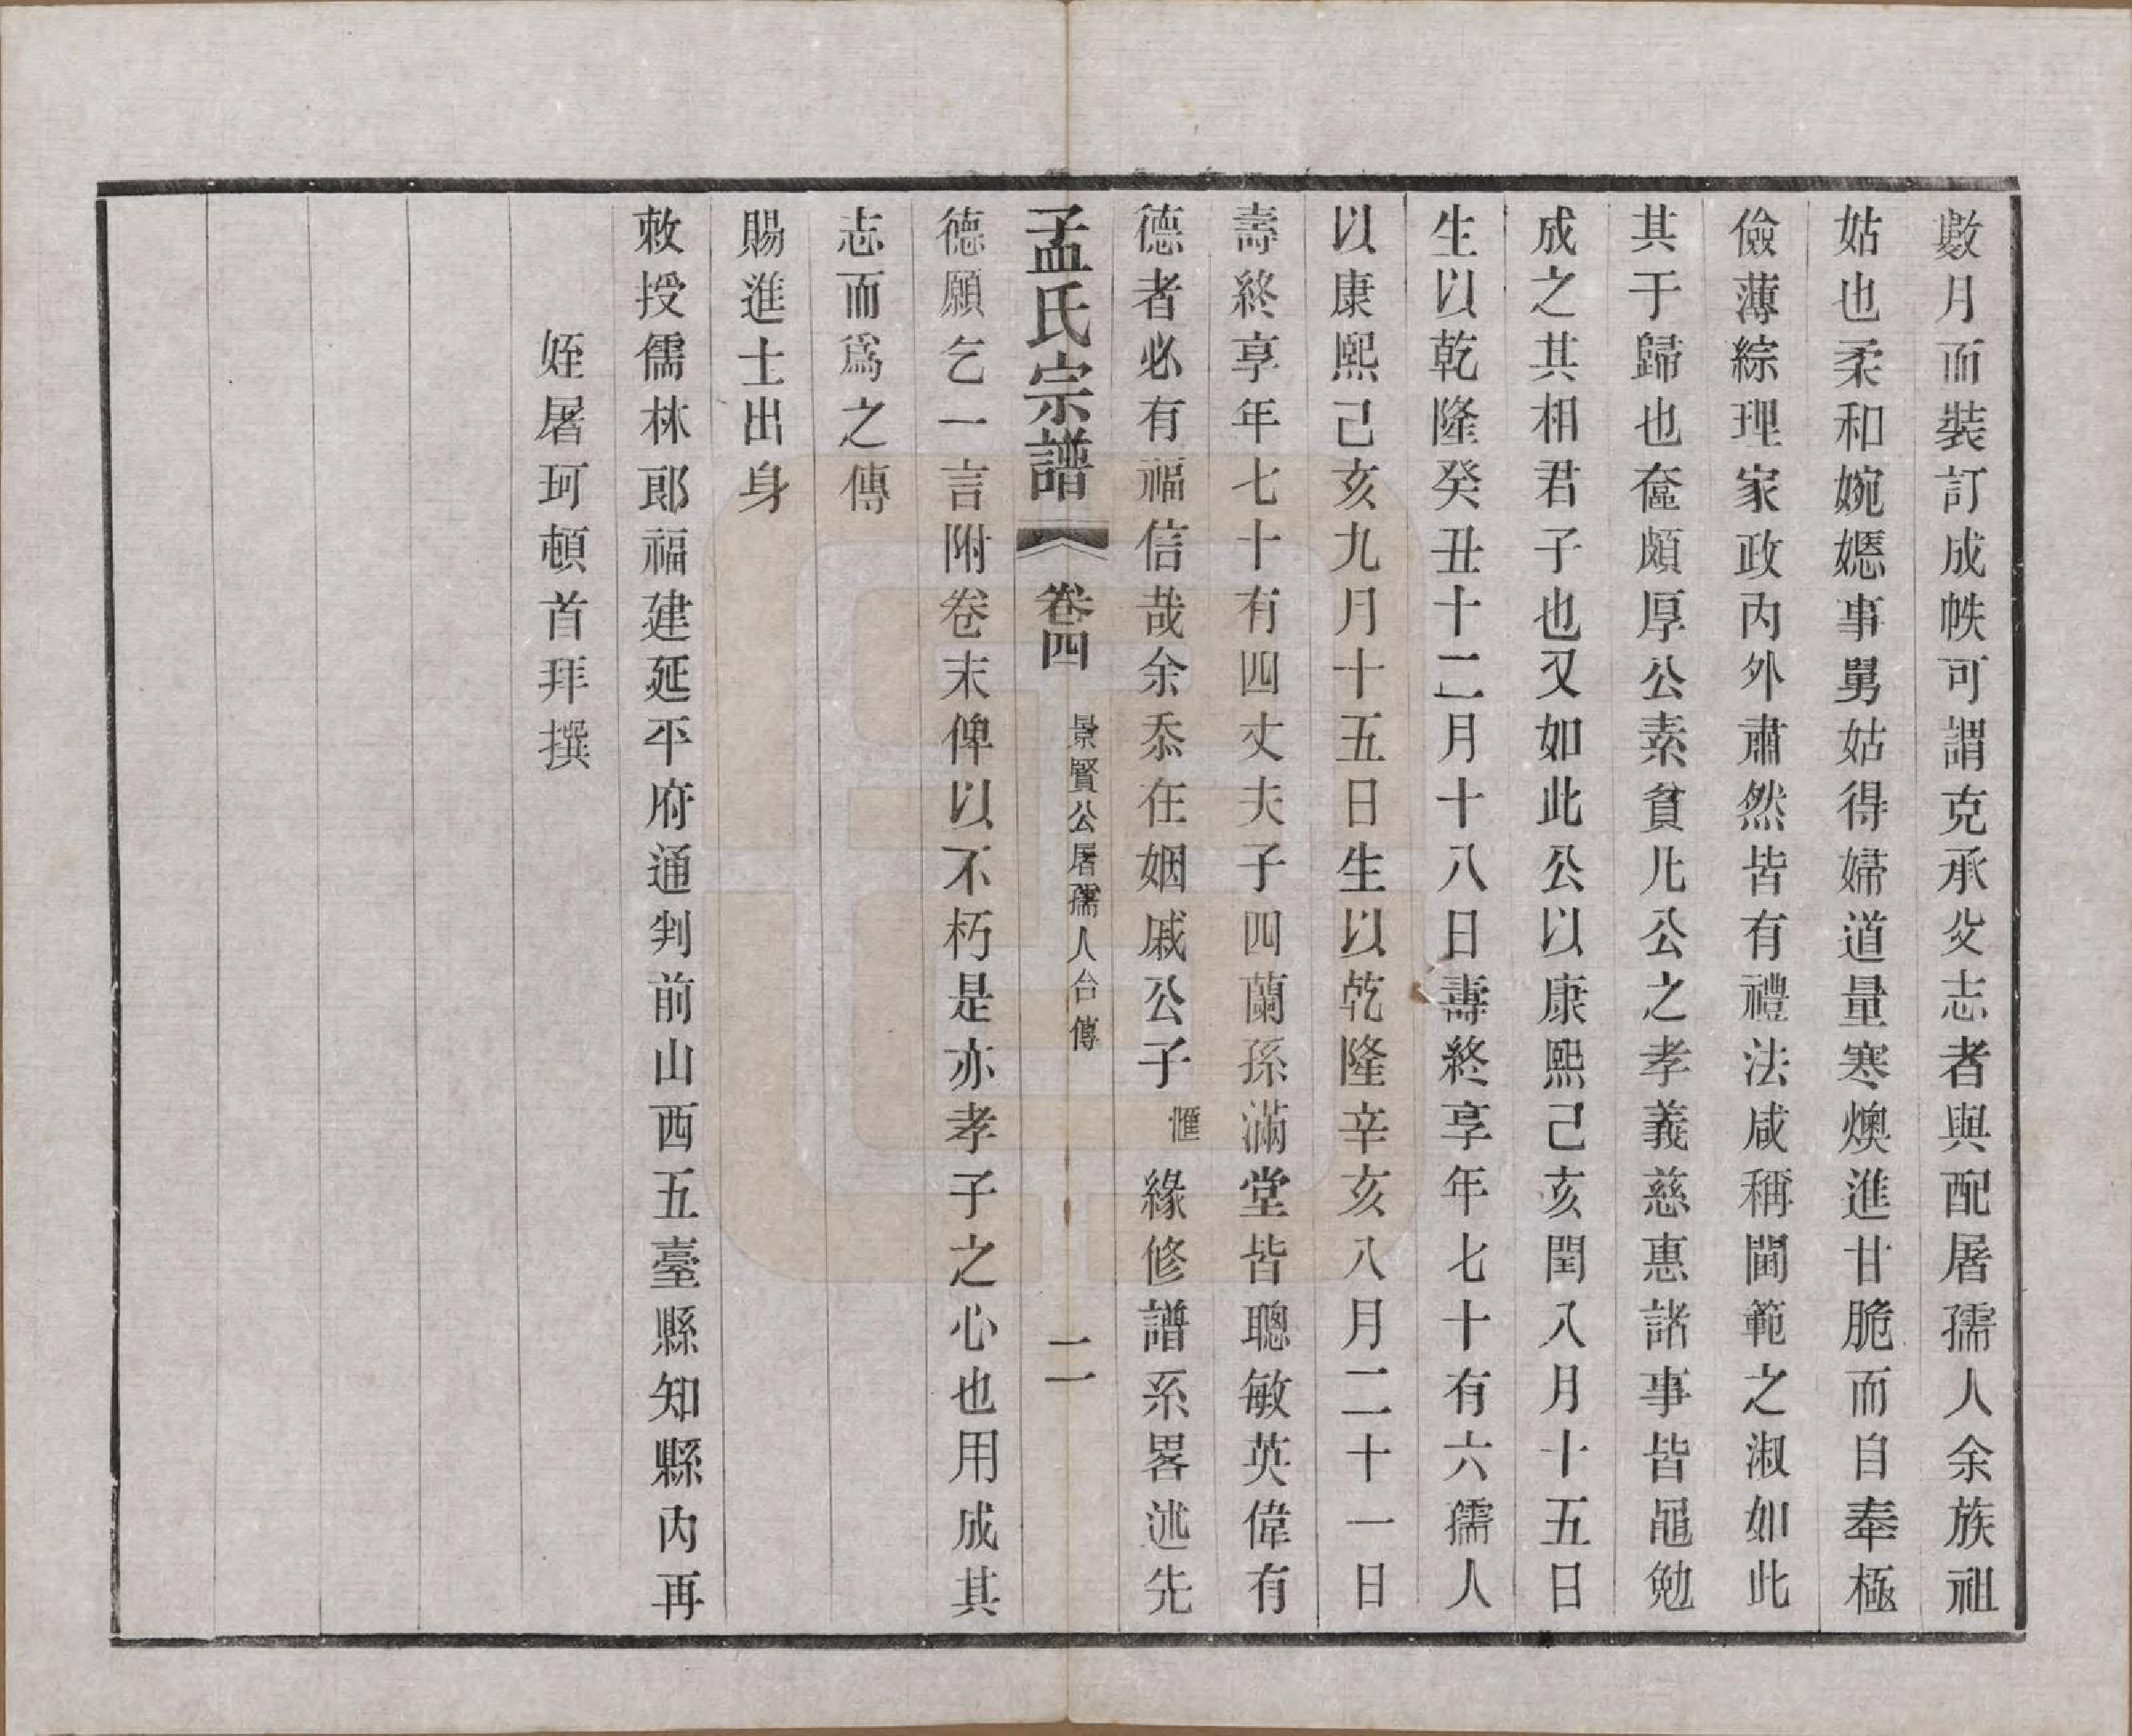 數月而裝訂成帙可謂克承父志者與配屠孺人余族祖
姑也柔和婉嫕事舅姑得婦道量寒燠進甘脆而自奉極
儉薄綜理家政内外肅然皆有禮法咸稱閫範之淑如此
其于歸也奩頗厚公素貧凡公之孝義慈惠諸事皆黽勉
成之其相君子也又如此公以康熙己亥閏八月十五日
生以乾隆癸丑十二月十八日壽終享年七十有六孺人
以康熙己亥九月十五日生以乾隆辛亥八月二十一日
壽終享年七十有四丈夫子四蘭孫滿堂皆聰敏英偉有
德者必有福信哉余忝在姻戚公子㥣緣修譜系畧述先
孟氏宗譜 卷四 景賢公屠孺人合傳 二
德願乞一言附卷末俾以不朽是亦孝子之心也用成其
志而爲之傳
賜進士出身
敕授儒林郎福建延平府通判前山西五臺縣知縣内再
姪屠珂頓首拜撰